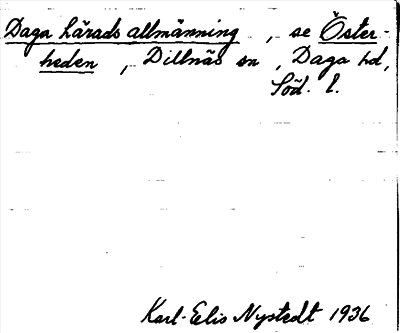 Daga härads allmänning, se Öster-
heden, Dillnäs sn, Daga hd,
Söd. l.
Karl-Eelis Nystedt 1936